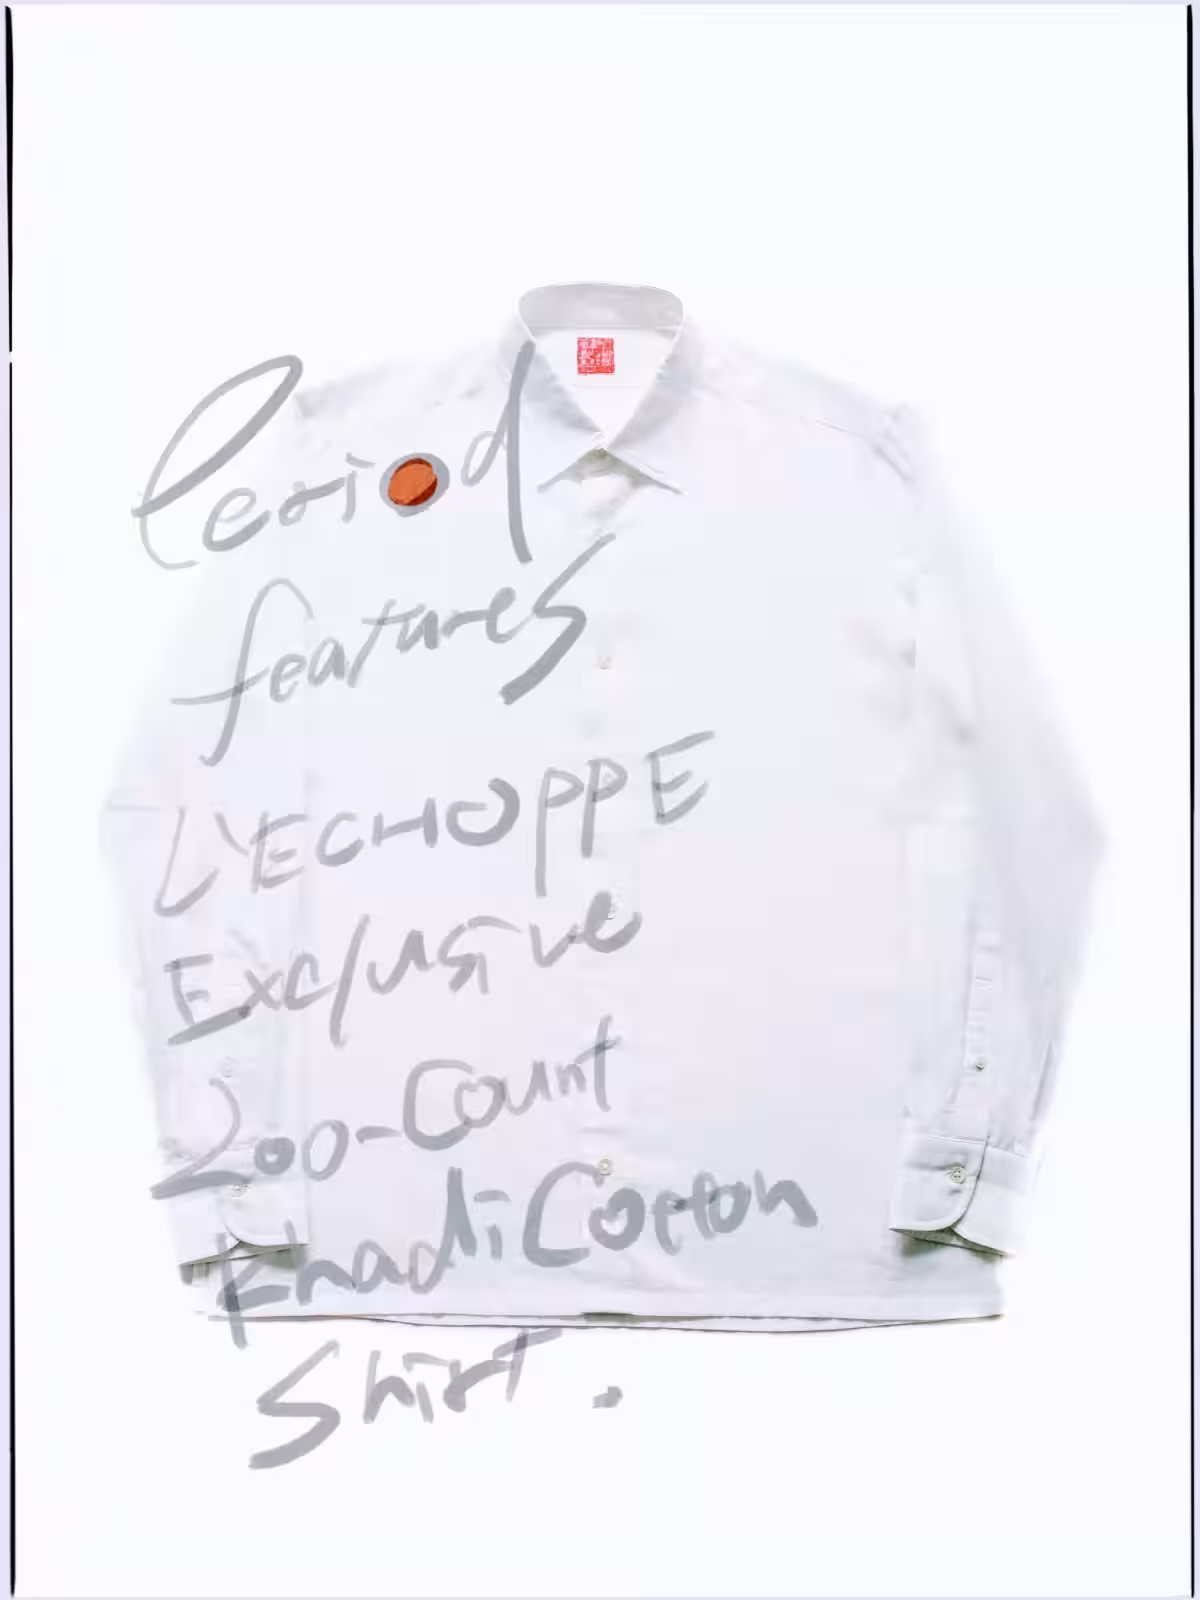 Period
features
L'ECHOPPE
Exclusive
200-Count
Khadi Cotton
Shirt.